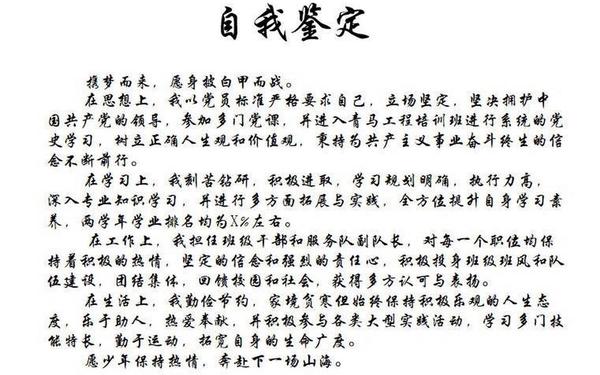 自我鉴定
携梦而来，愿身披白甲而战。
在思想上，我以党员标准严格要求自己，立场坚定，坚决拥护中
国共产党的领导，参加多门党课，并进入青马工程培训班进行系统的党
史学习，树立正确人生观和价值观，秉持为共产主义事业奋斗终生的信
念不断前行。
在学习上，我刻苦钻研，积极进取，学习规划明确，执行力高，
深入专业知识学习，并进行多方面拓展与实践，全方位提升自身学习素
养，两学年学业排名均为X%左右。
在工作上，我担任班级干部和服务队副队长，对每一个职位均保
持着积极的热情，坚定的信念和强烈的责任心，积极投身班级班风和队
伍建设，团结集体，回馈校园和社会，获得多方认可与表扬。
在生活上，我勤俭节约，家境贫寒但始终保持积极乐观的人生态
度，乐于助人，热爱奉献，并积极参与各类大型实践活动，学习多门技
能特长，勤于运动，拓宽自身的生命广度。
愿少年保持热情，奔赴下一场山海。